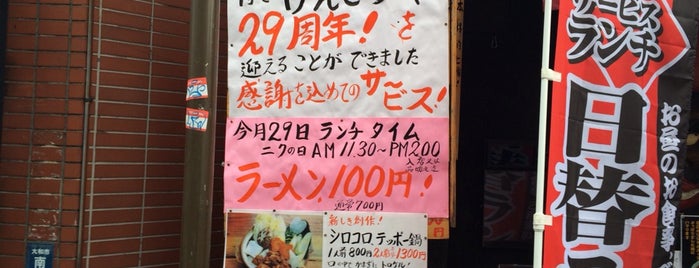 29周年!を
迎えることができました
感謝を込めてのサービス!
今月29日 ランチタイム
ニクの日 AM11.30〜PM2.00
ラーメン100円!
通常700円
新しき創作!
シロコロ、テッポー鍋
1人前800円 2人前1300円
サービス
ランチ
日替
お昼のお食事
大和市
南